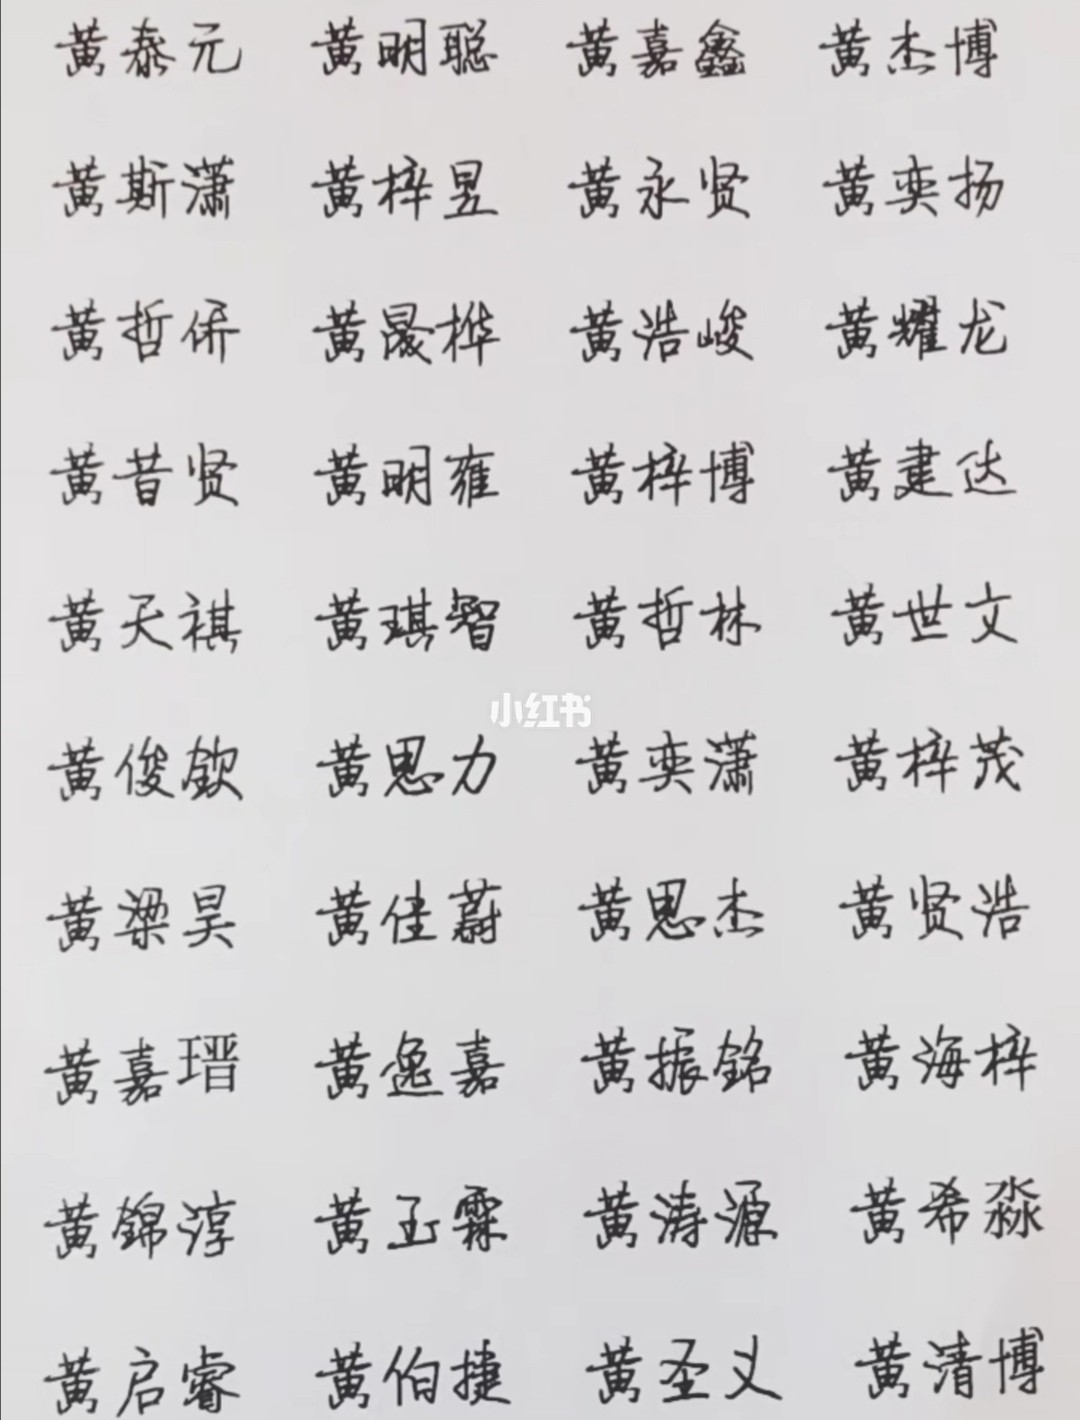 黄泰元 黄明聪 黄嘉鑫 黄杰博
黄斯潇 黄梓昱 黄永贤 黄奕扬
黄哲侨 黄晟桦 黄浩峻 黄耀龙
黄昔贤 黄明雍 黄梓博 黄建达
黄天祺 黄琪智 黄哲林 黄世文
小红书
黄俊钦 黄思力 黄奕潇 黄梓茂
黄梁昊 黄佳蔚 黄思杰 黄贤浩
黄嘉瑨 黄逸嘉 黄振铭 黄海梓
黄锦淳 黄玉霖 黄涛源 黄希淼
黄启睿 黄伯捷 黄圣义 黄清博